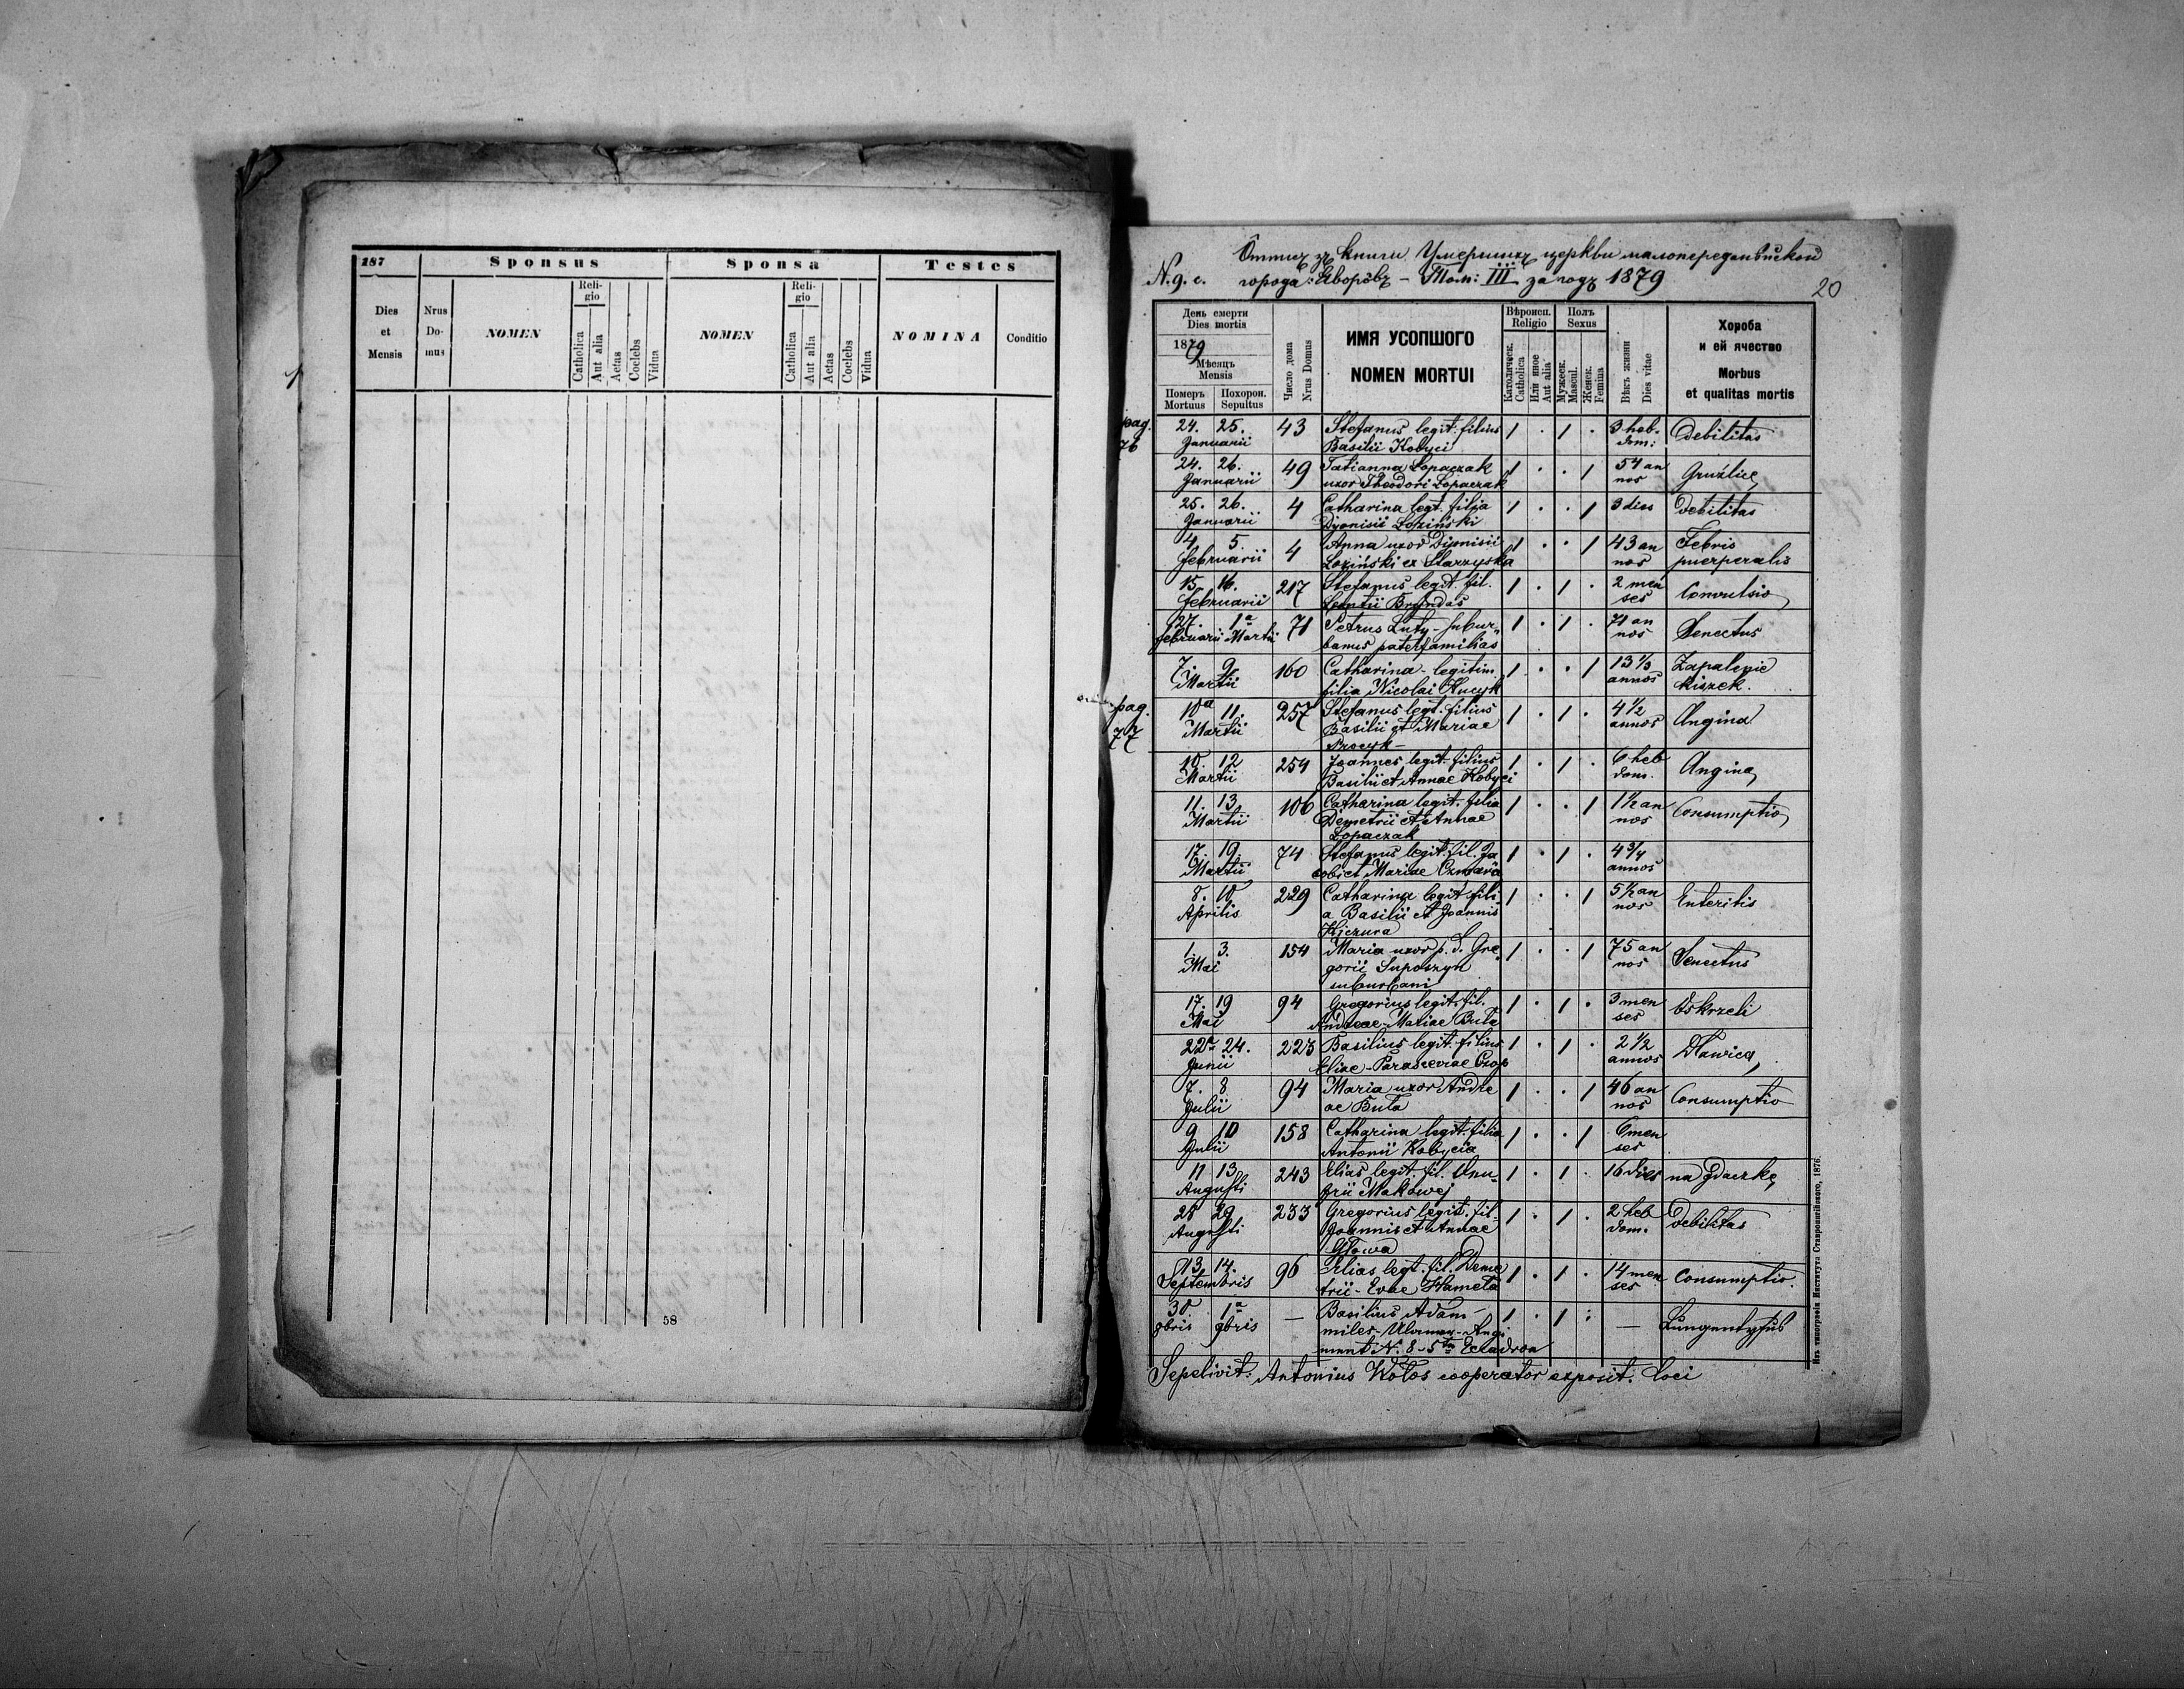 187
Sponsus
Sponsa
Testes
Dies et Mensis
Nrus Domus
NOMEN
Religio
Catholica
Aut alia
Aetas
Coelebs
Vidua
NOMEN
Religio
Catholica
Aut alia
Aetas
Coelebs
Vidua
NOMINA
Conditio
58
книги Умершихъ церкви
N. g. c. города: Яворôвъ - Том: III за годъ 1879
20
День смерти
Dies mortis
1879
Мѣсяцъ
Mensis
Померъ
Mortuus
Похорон.
Sepultus
Число дома
Nrus Domus
ИМЯ УСОПШОГО
NOMEN MORTUI
Вѣроисп.
Religio
Католическ.
Catholica
Или иное
Aut alia
Полъ
Sexus
Мужеск.
Mascul.
Женск.
Femina
Вѣкъ жизни
Dies vitae
Хороба
и ей ячество
Morbus
et qualitas mortis
pag. 24. 25. 43 Stefanus legit: filius 1 . 1 . 3 heb- Debilitas
76 Januarii Basilii Kobyci dom:
24. 26. 49 Tatianna Lopaczak 1 . . 1 54 an Gruźlice
Januarii uxor Theodori Lopaczak nos
25. 26. 4 Catharina legt. filia 1 . . 1 3 dies Debilitas
Januarii Dyonisii Loziński
4. 5. 4 Anna uxor Dionisii 1 . . 1 43 an Febris
februarii Loziński ex Starzyska nos puerperalis
15. 16. 217 Stefanus legit. fil. 1 . 1 . 2 men Convulsio
februarii Leontii Bryndas ses
27. 1a 71 Petrus Luty - subur- 1 . 1 . 71 an Senectus
februarii Martii banus paterfamilias nos
7. 9. 160 Catharina - legitim. 1 . . 1 13 1/2 Zapalenie
Martii filia Nicolai Hucyk annos kiszek.
pag. 10a 11. 257 Stefanus legt. filius 1 . 1 . 4 1/2 Angina
77 Martii Basilii et Mariae annos
Procyk -
10. 12 254 Joannes legit. filius 1 . 1 . 6 heb Angina
Martii Basilii et Annae Kobyci dom.
11. 13. 106 Catharina legit. filia 1 . . 1 1 1/2 an Consumptio
Martii Demetrii et Annae nos
Lopaczak
17. 19. 74 Stefanus legit. fil. Ja 1 . 1 . 4 3/4
Martii cobi et Mariae annos
8. 10. 229 Catharina legit fili- 1 . . 1 5 1/2 an Enteritis
Aprilis a Basilii et Joannis nos
1. 3. 154 Maria uxor p. d. Gre 1 . . 1 75 an Senectus
Mai gorii Suposzyn nos
suburbani
17. 19 94 Gregorius legit. fil. 1 . 1 . 3 men Oskrzeli
Mai Andreae - Mariae Buta ses
22a 24. 223 Basilius legit. filius 1 . 1 . 2 1/2 Dławica
Junii Eliae - Parascevae Czop annos
7. 8. 94 Maria uxor Andre 1 . . 1 46 an Consumptio
Julii ae Buta nos
9 10 158 Catharina legit. filia 1 . . 1 6 men
Julii Antonii Kobycia ses
11 13 243 Elias legit. fil. Onu- 1 . 1 . 16 dies na gdaczkę
Augusti frii Makowej
28 29 233 Gregorius legit. fil. 1 . 1 . 2 heb Debilitas
Augusti Joannis et Annae dom.
Głowa
13. 14. 96 Elias legt. fil. Deme 1 . 1 . 14 men Consumptio.
Septembris trii - Evae Hameta ses
30 1a — Basilius Adam - 1 . 1 : — Lungentyfus
gbris gbris miles
N. 8 - 5ta
Sepelivit: Antonius Kolos cooperator exposit. loci
Изъ типографіи Института Ставропигійского, 1876.